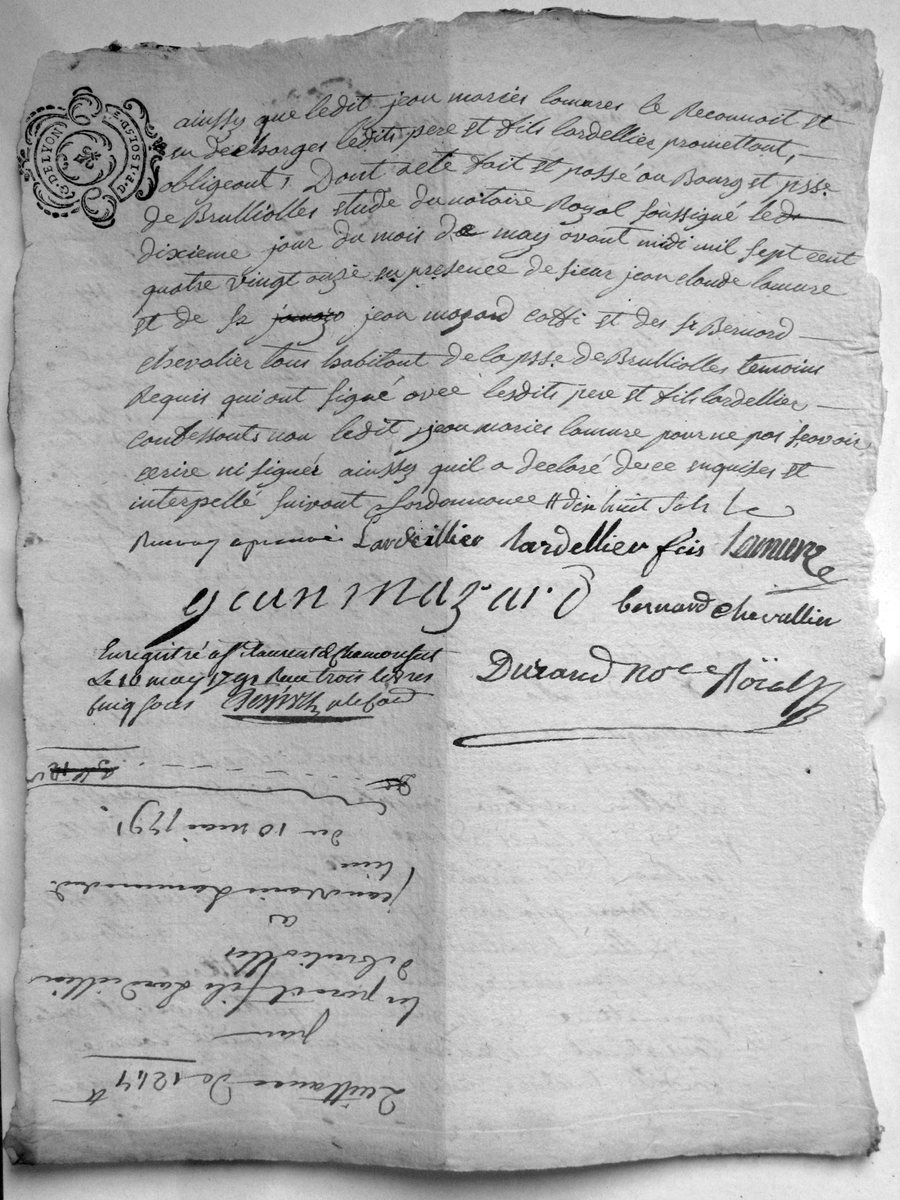 G. DE LYON
D. F. 3 SOLS D. F.
ainssy que ledit jean mariés lamures le Reconnoit et
en decharges lesdits pere et fils lardellier promettant,
obligeant, Dont acte fait et passé au Bourg et psse.
de Brulliolles etude du notaire Royal soussigné le
dixieme jour du mois de may avant midi mil sept cent
quatre vingt onze en presence de sieur jean claude lamure
et de sr jean mazard et des sr Bernard
chevalier tous habitant de la psse. de Brulliolles temoins
Requis qui ont signé avec lesdits pere et fils lardellier
non ledit jean mariés lamure pour ne pas scavoir
ecrire ni signér ainssy quil a declaré de ce enquises et
interpellé suivant lordonnance # dix huit sols
Lardeillier lardellier fils lamure
jean mazard bernard chevallier
Enregistré a st laurent de chamousset
Le 10 may 1791 Reçu trois livres
cinq sous
Durand no.re Röial
Quittance de 1247 tt
pour
les pere et fils Lardellier
de brulliolles
a
jean marie Lamure
du 10 mai 1791.